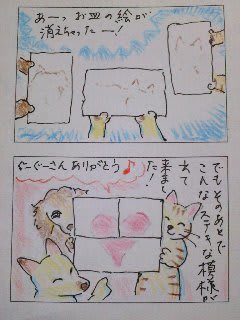 あーっお皿の絵が
消えちゃったー!
でもそのあとで
こんなステキな模様が
出て
来まし
た!
ぐーぐーさんありがとう♪